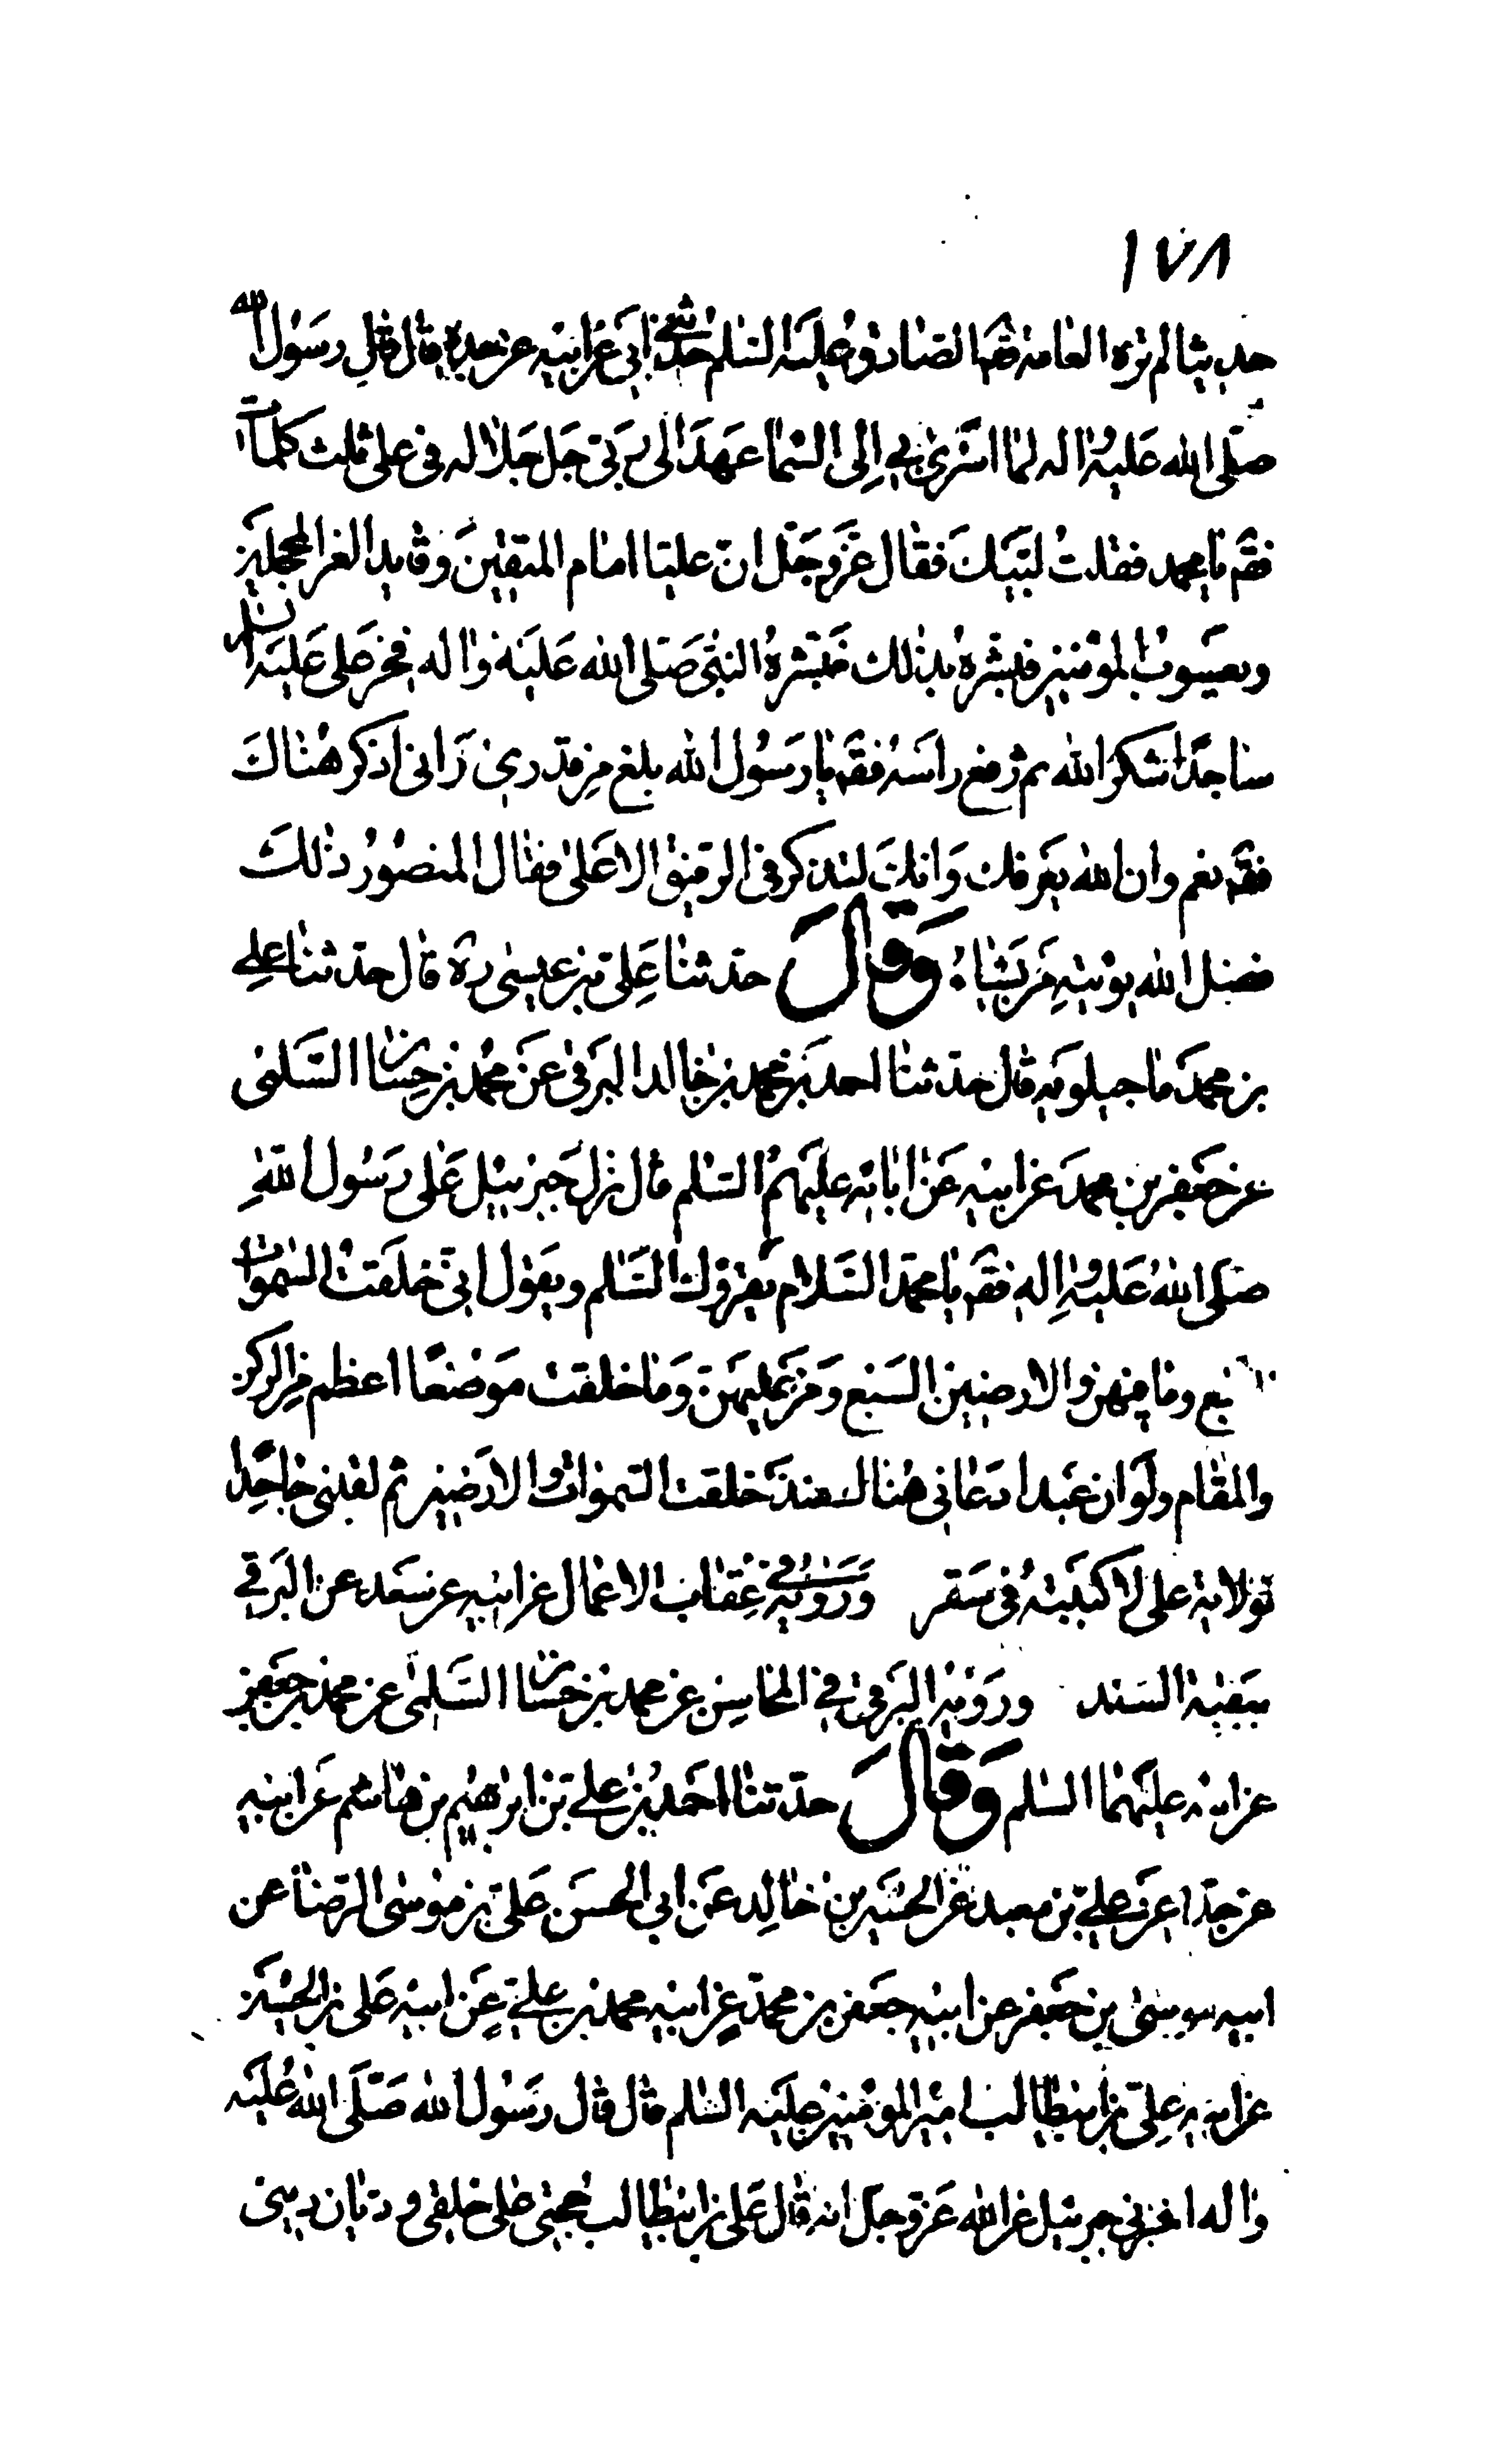 ١٧٨
حديثا لم تروه العامة فقال الصادق عليه السلم حدثني ابي عن ابيه عن جده قال قال رسول الله
صلى الله عليه واله لما اسري بي الى السما عهد الى ربي جل جلاله في علي ثلث كلمات
فقم يا محمد فقلت لبيك فقال عز وجل ان عليا امام المتقين وقايد الغر المحجلين
ويعسوب المؤمنين فبشره بذلك فبشره النبي صلى الله عليه واله فخر علي عليه السلم
ساجدا شكرا لله ثم رفع راسه فقم يا رسول الله بلغ من قدري اني اذكر هناك
فقم نعم وان الله يعرفك وانك لتذكر في الرفيق الاعلى فقال المنصور ذلك
فضل الله يوتيه من يشاء وقال حدثنا علي بن عيسى ره قال حدثنا علي
بن محمد ماجيلويه قال حدثنا احمد بن محمد بن خالد البرقي عن محمد بن حسان السلمي
عن جعفر بن محمد عن ابيه عن ابائه عليهم السلم قال نزل جبرئيل على رسول الله
صلى الله عليه واله فقم يا محمد السلام يقرؤك السلم ويقول اني خلقت السموات
السبع وما فيهن والارضين السبع ومن عليهن وما خلقت موضعا اعظم من الركن
والمقام ولو ان عبدا دعاني هناك منذ خلقت السموات والارضين ثم لقيني جاحدا
لولاية علي لاكببته في سقر ورواه في عقاب الاعمال عن ابيه عن سعد عن البرقي
ببقية السند ورواه البرقي في المحاسن عن محمد بن حسان السلمي عن محمد بن جعفر
عن ابيه عليهما السلم وقال حدثنا احمد بن علي بن ابرهيم بن هاشم عن ابيه
عن جده عن علي بن معبد عن الحسين بن خالد عن ابي الحسن علي بن موسى الرضا عن
ابيه موسى بن جعفر عن ابيه جعفر بن محمد عن ابيه محمد بن علي عن ابيه علي بن الحسين
عن ابيه علي بن ابيطالب امير المؤمنين عليه السلم قال قال رسول الله صلى الله عليه
واله اخبرني جبرئيل عن الله عز وجل انه قال علي بن ابيطالب حجتي على خلقي وديان ديني